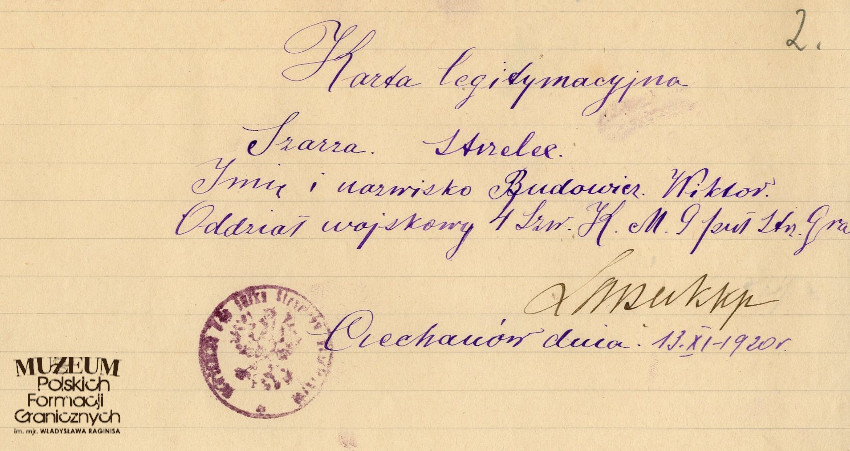 2.
Karta legitymacyjna
Szarża. Strzelec.
Imię i nazwisko Budowicz. Wiktor.
Oddział wojskowy 4 Szw. K. M. 9 puł Strz. Gra
Ciechanów dnia. 13.XI-1920r.
MUZEUM
Polskich
Formacji
Granicznych
im. mjr. WŁADYSŁAWA RAGINISA